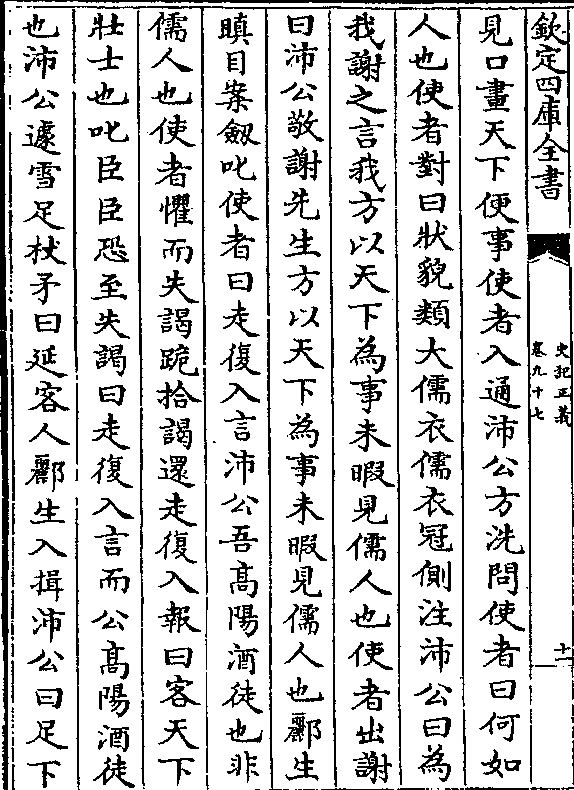 欽定四庫全書
史記正義
卷九十七
十一
見口畫天下便事使者入通沛公方洗問使者曰何如
人也使者對曰狀貌類大儒衣儒衣冠側注沛公曰為
我謝之言我方以天下為事未暇見儒人也使者出謝
曰沛公敬謝先生方以天下為事未暇見儒人也酈生
瞋目案劔叱使者曰走復入言沛公吾髙陽酒徒也非
儒人也使者懼而失謁跪拾謁還走復入報曰客天下
壯士也叱臣臣恐至失謁曰走復入言而公髙陽酒徒
也沛公遽雪足杖矛曰延客人酈生入揖沛公曰足下